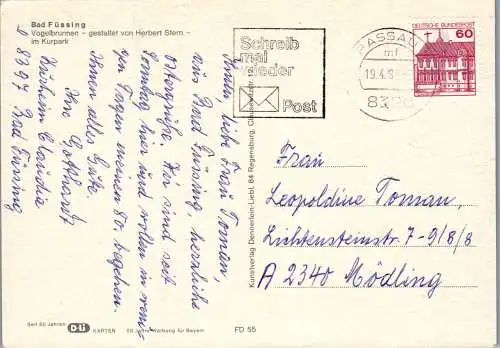 Bad Füssing
Vogelbrunnen – gestaltet von Herbert Stern –
im Kurpark
Ihnen, liebe Frau Toman,
aus Bad Füssing, herzliche
Ostergrüße. Wir sind seit
Sonntag hier und wollen in weni-
gen Tagen meinen 80. begehen.
Ihnen alles Gute.
Ihre Gotthardt
Kurheim Claudia
D 8397 Bad Füssing
Seit 60 Jahren D-Li KARTEN 60 Jahre Werbung für Bayern
FD 55
Kunstverlag Demmerlein-Liebl, 84 Regensburg,
Schreib
mal
wieder
Post
PASSAU
mf
19.4.
DEUTSCHE BUNDESPOST
60
Frau
Leopoldine Toman,
Lichtensteinstr. 7-9/8/8
A 2340 Mödling